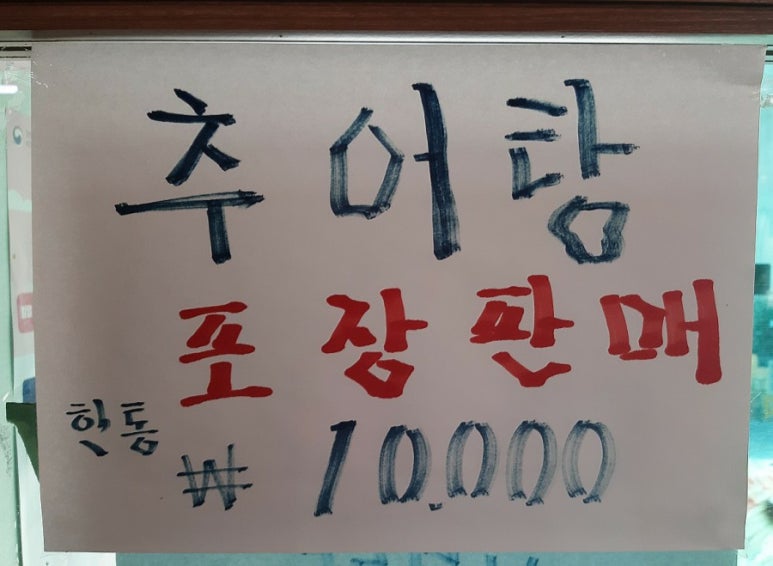 추어탕
포장판매
한통
₩ 10.000